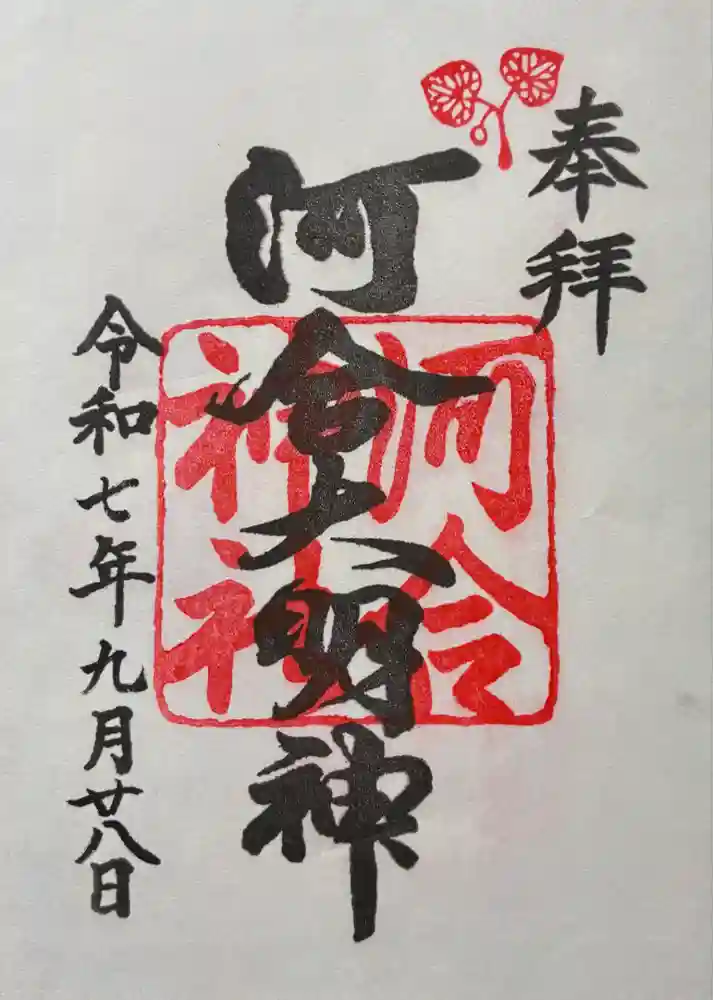 奉拝
河合大明神
河合神社
令和七年九月廿八日